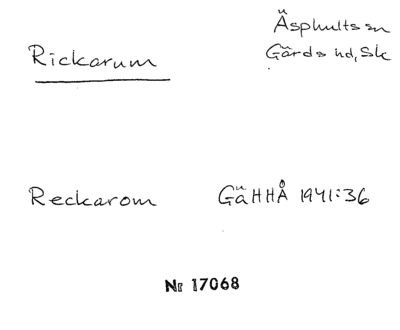 Rickarum
Äsphults sn
Gärds hd, Sk
Reckarom GäHHÅ 1941:36
Nr 17068